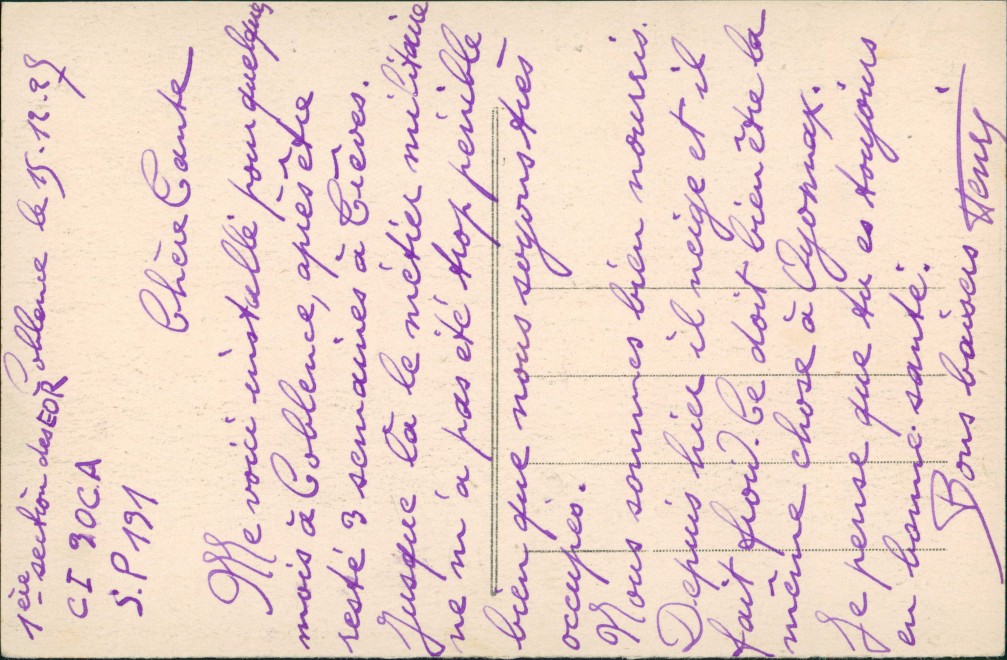 1ère section des EOR Coblence le 15.12.25
CI 20CA
S.P 191
Chère Tante
Me voici installé pour quelques
mois à Coblence, après être
resté 3 semaines à Trèves.
Jusque là le métier militaire
ne m'a pas été trop pénible
bien que nous soyons très
occupés.
Nous sommes bien nourris.
Depuis hier il neige et il
fait froid. Ce doit bien être la
même chose à Oyonnax.
Je pense que tu es toujours
en bonne santé.
Bons baisers Henri